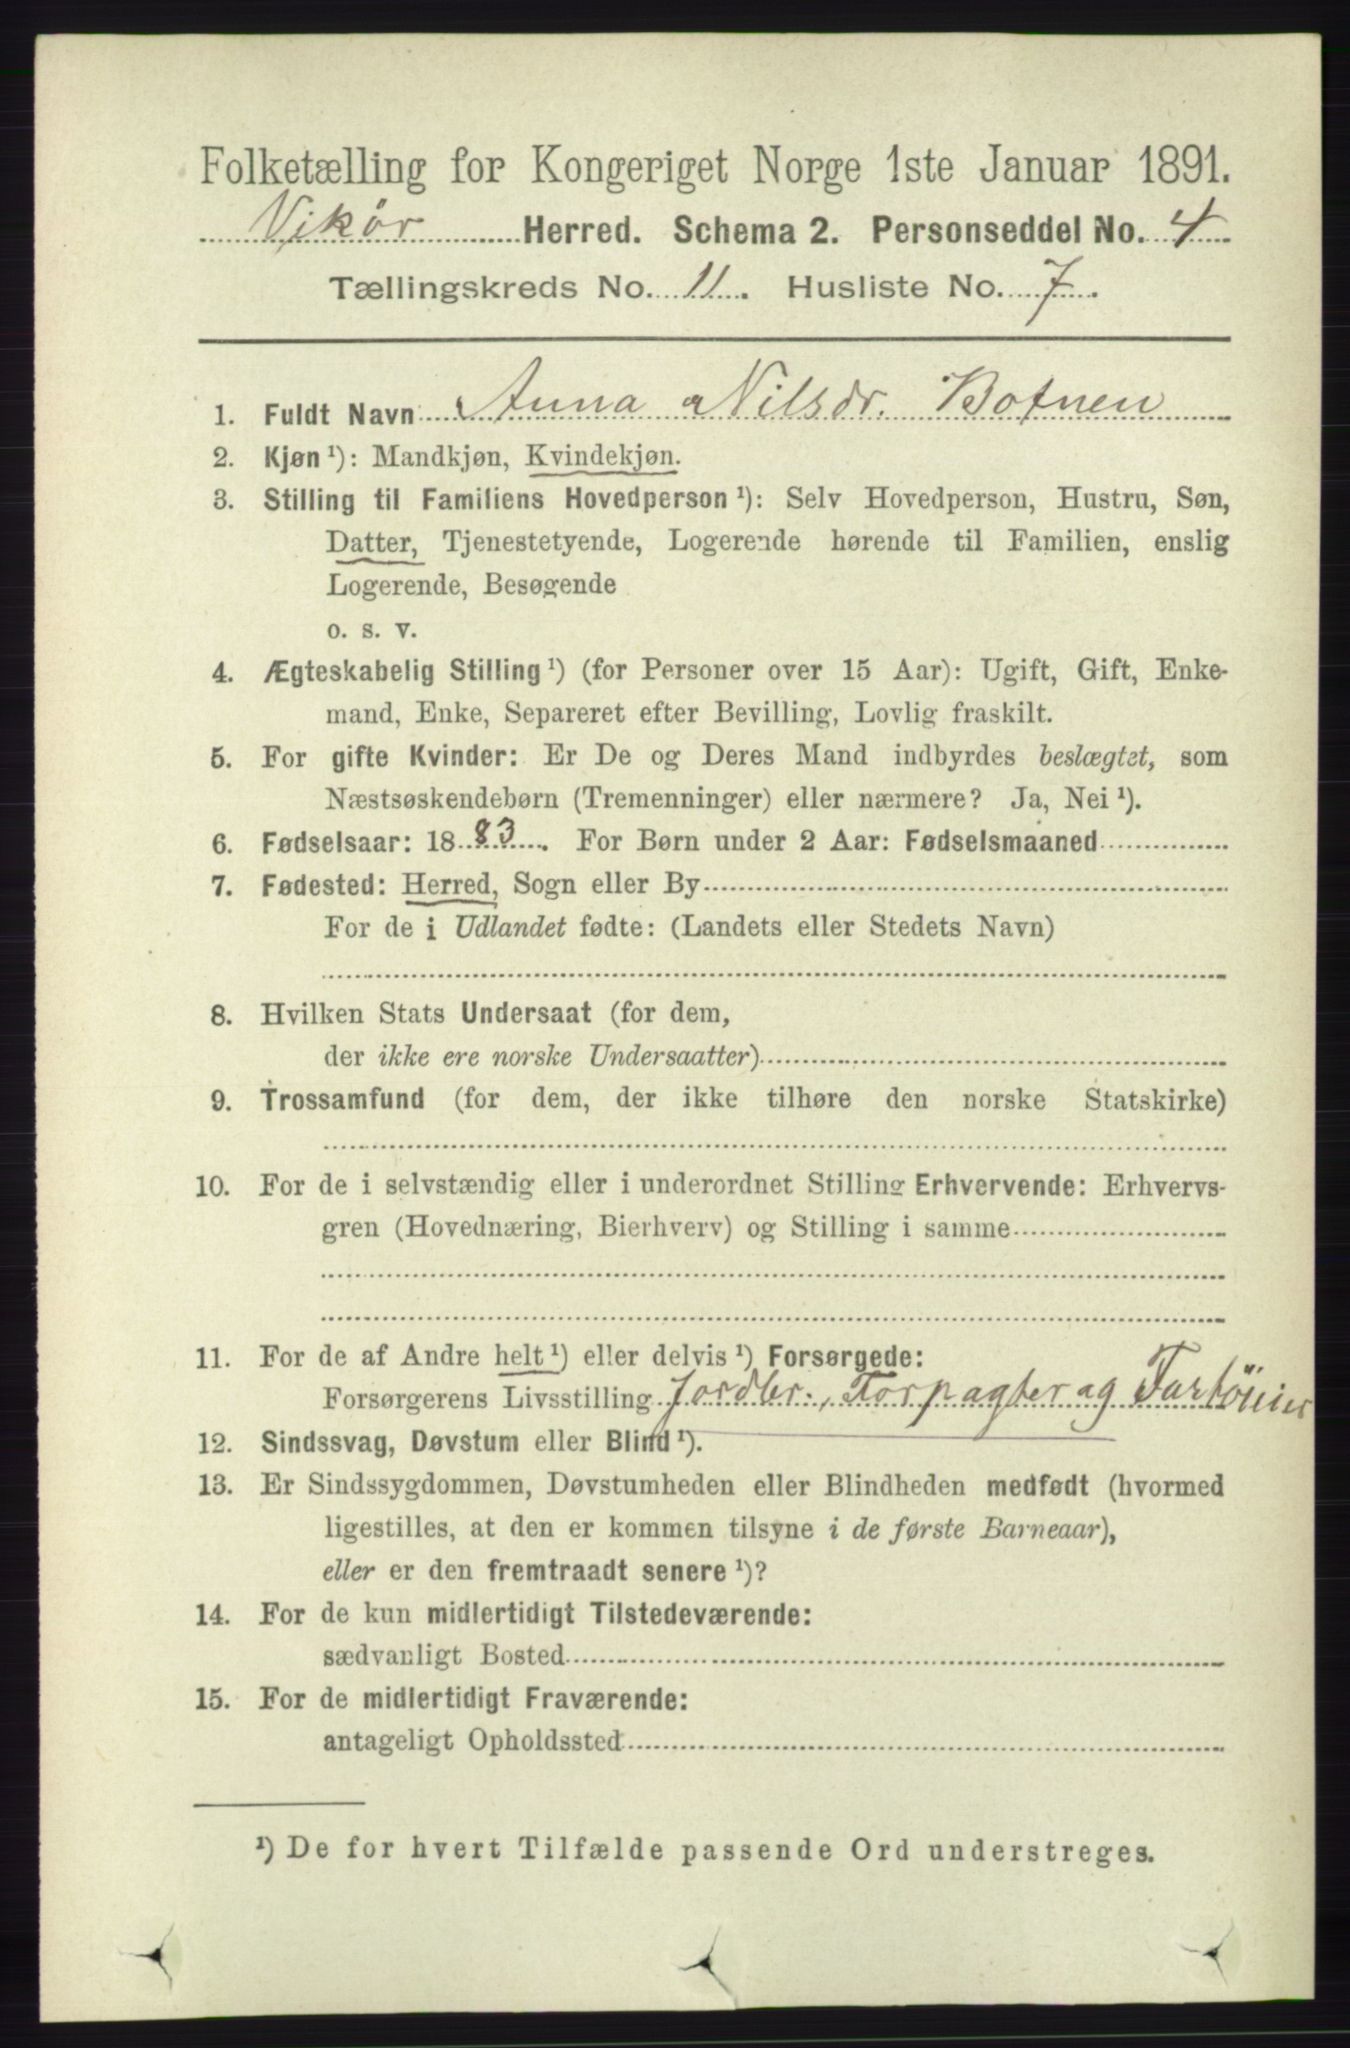 Folketælling for Kongeriget Norge 1ste Januar 1891.
Vikør Herred. Schema 2. Personseddel No. 4
Tællingskreds No. 11. Husliste No. 7.
1. Fuldt Navn Anna Nilsdr. Botnen
2. Kjøn ¹): Mandkjøn, Kvindekjøn.
3. Stilling til Familiens Hovedperson ¹): Selv Hovedperson, Hustru, Søn,
Datter, Tjenestetyende, Logerende hørende til Familien, enslig
Logerende, Besøgende
o. s. v.
4. Ægteskabelig Stilling ¹) (for Personer over 15 Aar): Ugift, Gift, Enke-
mand, Enke, Separeret efter Bevilling, Lovlig fraskilt.
5. For gifte Kvinder: Er De og Deres Mand indbyrdes beslægtet, som
Næstsøskendebørn (Tremenninger) eller nærmere? Ja, Nei ¹).
6. Fødselsaar: 1883. For Børn under 2 Aar: Fødselsmaaned
7. Fødested: Herred, Sogn eller By
For de i Udlandet fødte: (Landets eller Stedets Navn)
8. Hvilken Stats Undersaat (for dem,
der ikke ere norske Undersaatter)
9. Trossamfund (for dem, der ikke tilhøre den norske Statskirke)
10. For de i selvstændig eller i underordnet Stilling Erhvervende: Erhvervs-
gren (Hovednæring, Bierhverv) og Stilling i samme
11. For de af Andre helt ¹) eller delvis ¹) Forsørgede:
Forsørgerens Livsstilling Jordbr., Forpagter og
12. Sindssvag, Døvstum eller Blind ¹).
13. Er Sindssygdommen, Døvstumheden eller Blindheden medfødt (hvormed
ligestilles, at den er kommen tilsyne i de første Barneaar),
eller er den fremtraadt senere ¹)?
14. For de kun midlertidigt Tilstedeværende:
sædvanligt Bosted
15. For de midlertidigt Fraværende:
antageligt Opholdssted
¹) De for hvert Tilfælde passende Ord understreges.